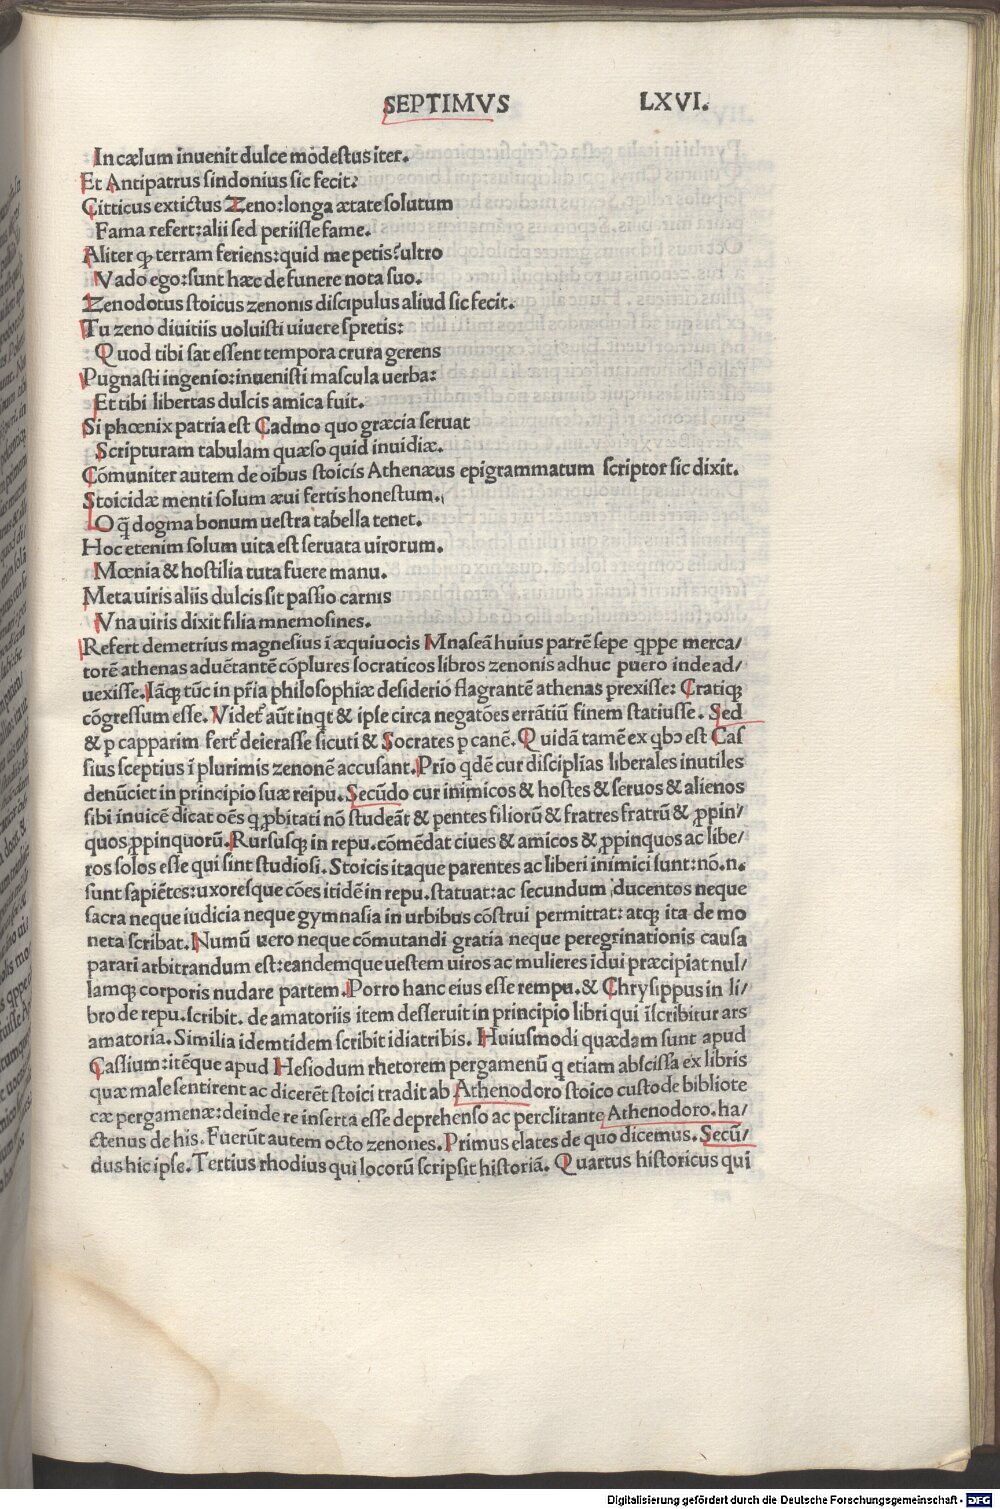 SEPTIMVS LXVI.
In cælum inuenit dulce mõdestus iter.
Et Antipatrus sindonius sic fecit:
Citticus extictus Zeno: longa ætate solutum
Fama refert: alii sed periisse fame.
Aliter qꝫ terram feriens: quid me petis? ultro
Vado ego: sunt hæc de funere nota suo.
Zenodotus stoicus zenonis discipulus aliud sic fecit.
Tu zeno diuitiis uoluisti uiuere spretis:
Quod tibi sat essent tempora crura gerens
Pugnasti ingenio: inuenisti mascula uerba:
Et tibi libertas dulcis amica fuit.
Si phœnix patria est Cadmo quo græcia seruat
Scripturam tabulam quæso quid inuidiæ.
Cõmuniter autem de oĩbus stoicis Athenæus epigrammatum scriptor sic dixit.
Stoicidæ menti solum æui fertis honestum.
O q̃ dogma bonum uestra tabella tenet.
Hoc etenim solum uita est seruata uirorum.
Mœnia & hostilia tuta fuere manu.
Meta uiris aliis dulcis sit passio carnis
Vna uiris dixit filia mnemosines.
Refert demetrius magnesius ĩ æquiuocis Mnaseã huius patrẽ sepe qppe merca/
torẽ athenas aduẽtantẽ cõplures socraticos libros zenonis adhuc puero inde ad/
uexisse. Iãqꝫ tũc in pr̃ia philosophiæ desiderio flagrantẽ athenas prexisse: Cratiqꝫ
cõgressum esse. Videt᷑ aũt inqt & ipse circa negatões errãtiũ finem statiusse. Sed
& p capparim fert᷑ deierasse sicuti & Socrates p canẽ. Quidã tamẽ ex qbꝯ est Cas
sius sceptius ĩ plurimis zenonẽ accusant. Prio qdẽ cur disciplias liberales inutiles
denũciet in principio suæ reipu. Secũdo cur inimicos & hostes & seruos & alienos
sibi inuicẽ dicat oẽs q ꝓbitati nõ studeãt & pentes filiorũ & fratres fratrũ & ꝓpin/
quos ꝓpinquorũ. Rursusqꝫ in repu. cõmẽdat ciues & amicos & ꝓpinquos ac libe/
ros solos esse qui sint studiosi. Stoicis itaque parentes ac liberi inimici sunt: nõ.n.
sunt sapiẽtes: uxoresque cões itidẽ in repu. statuat: ac secundum ducentos neque
sacra neque iudicia neque gymnasia in urbibus cõstrui permittat: atqꝫ ita de mo
neta scribat. Numũ uero neque cõmutandi gratia neque peregrinationis causa
parari arbitrandum est: eandemque uestem uiros ac mulieres idui præcipiat nul/
lamqꝫ corporis nudare partem. Porro hanc eius esse rempu. & Chrysippus in li/
bro de repu. scribit. de amatoriis item desseruit in principio libri qui ĩscribitur ars
amatoria. Similia idemtidem scribit idiatribis. Huiusmodi quædam sunt apud
Cassium: itẽque apud Hesiodum rhetorem pergamenũ q etiam abscissa ex libris
quæ male sentirent ac dicerẽt stoici tradit ab Athenodoro stoico custode bibliote
cæ pergamenæ: deinde re inserta esse deprehenso ac perclitante Athenodoro. ha/
ctenus de his. Fuerũt autem octo zenones. Primus elates de quo dicemus. Secũ/
dus hic ipse. Tertius rhodius qui locorũ scripsit historiã. Quartus historicus qui
Digitalisierung gefördert durch die Deutsche Forschungsgemeinschaft - DFG